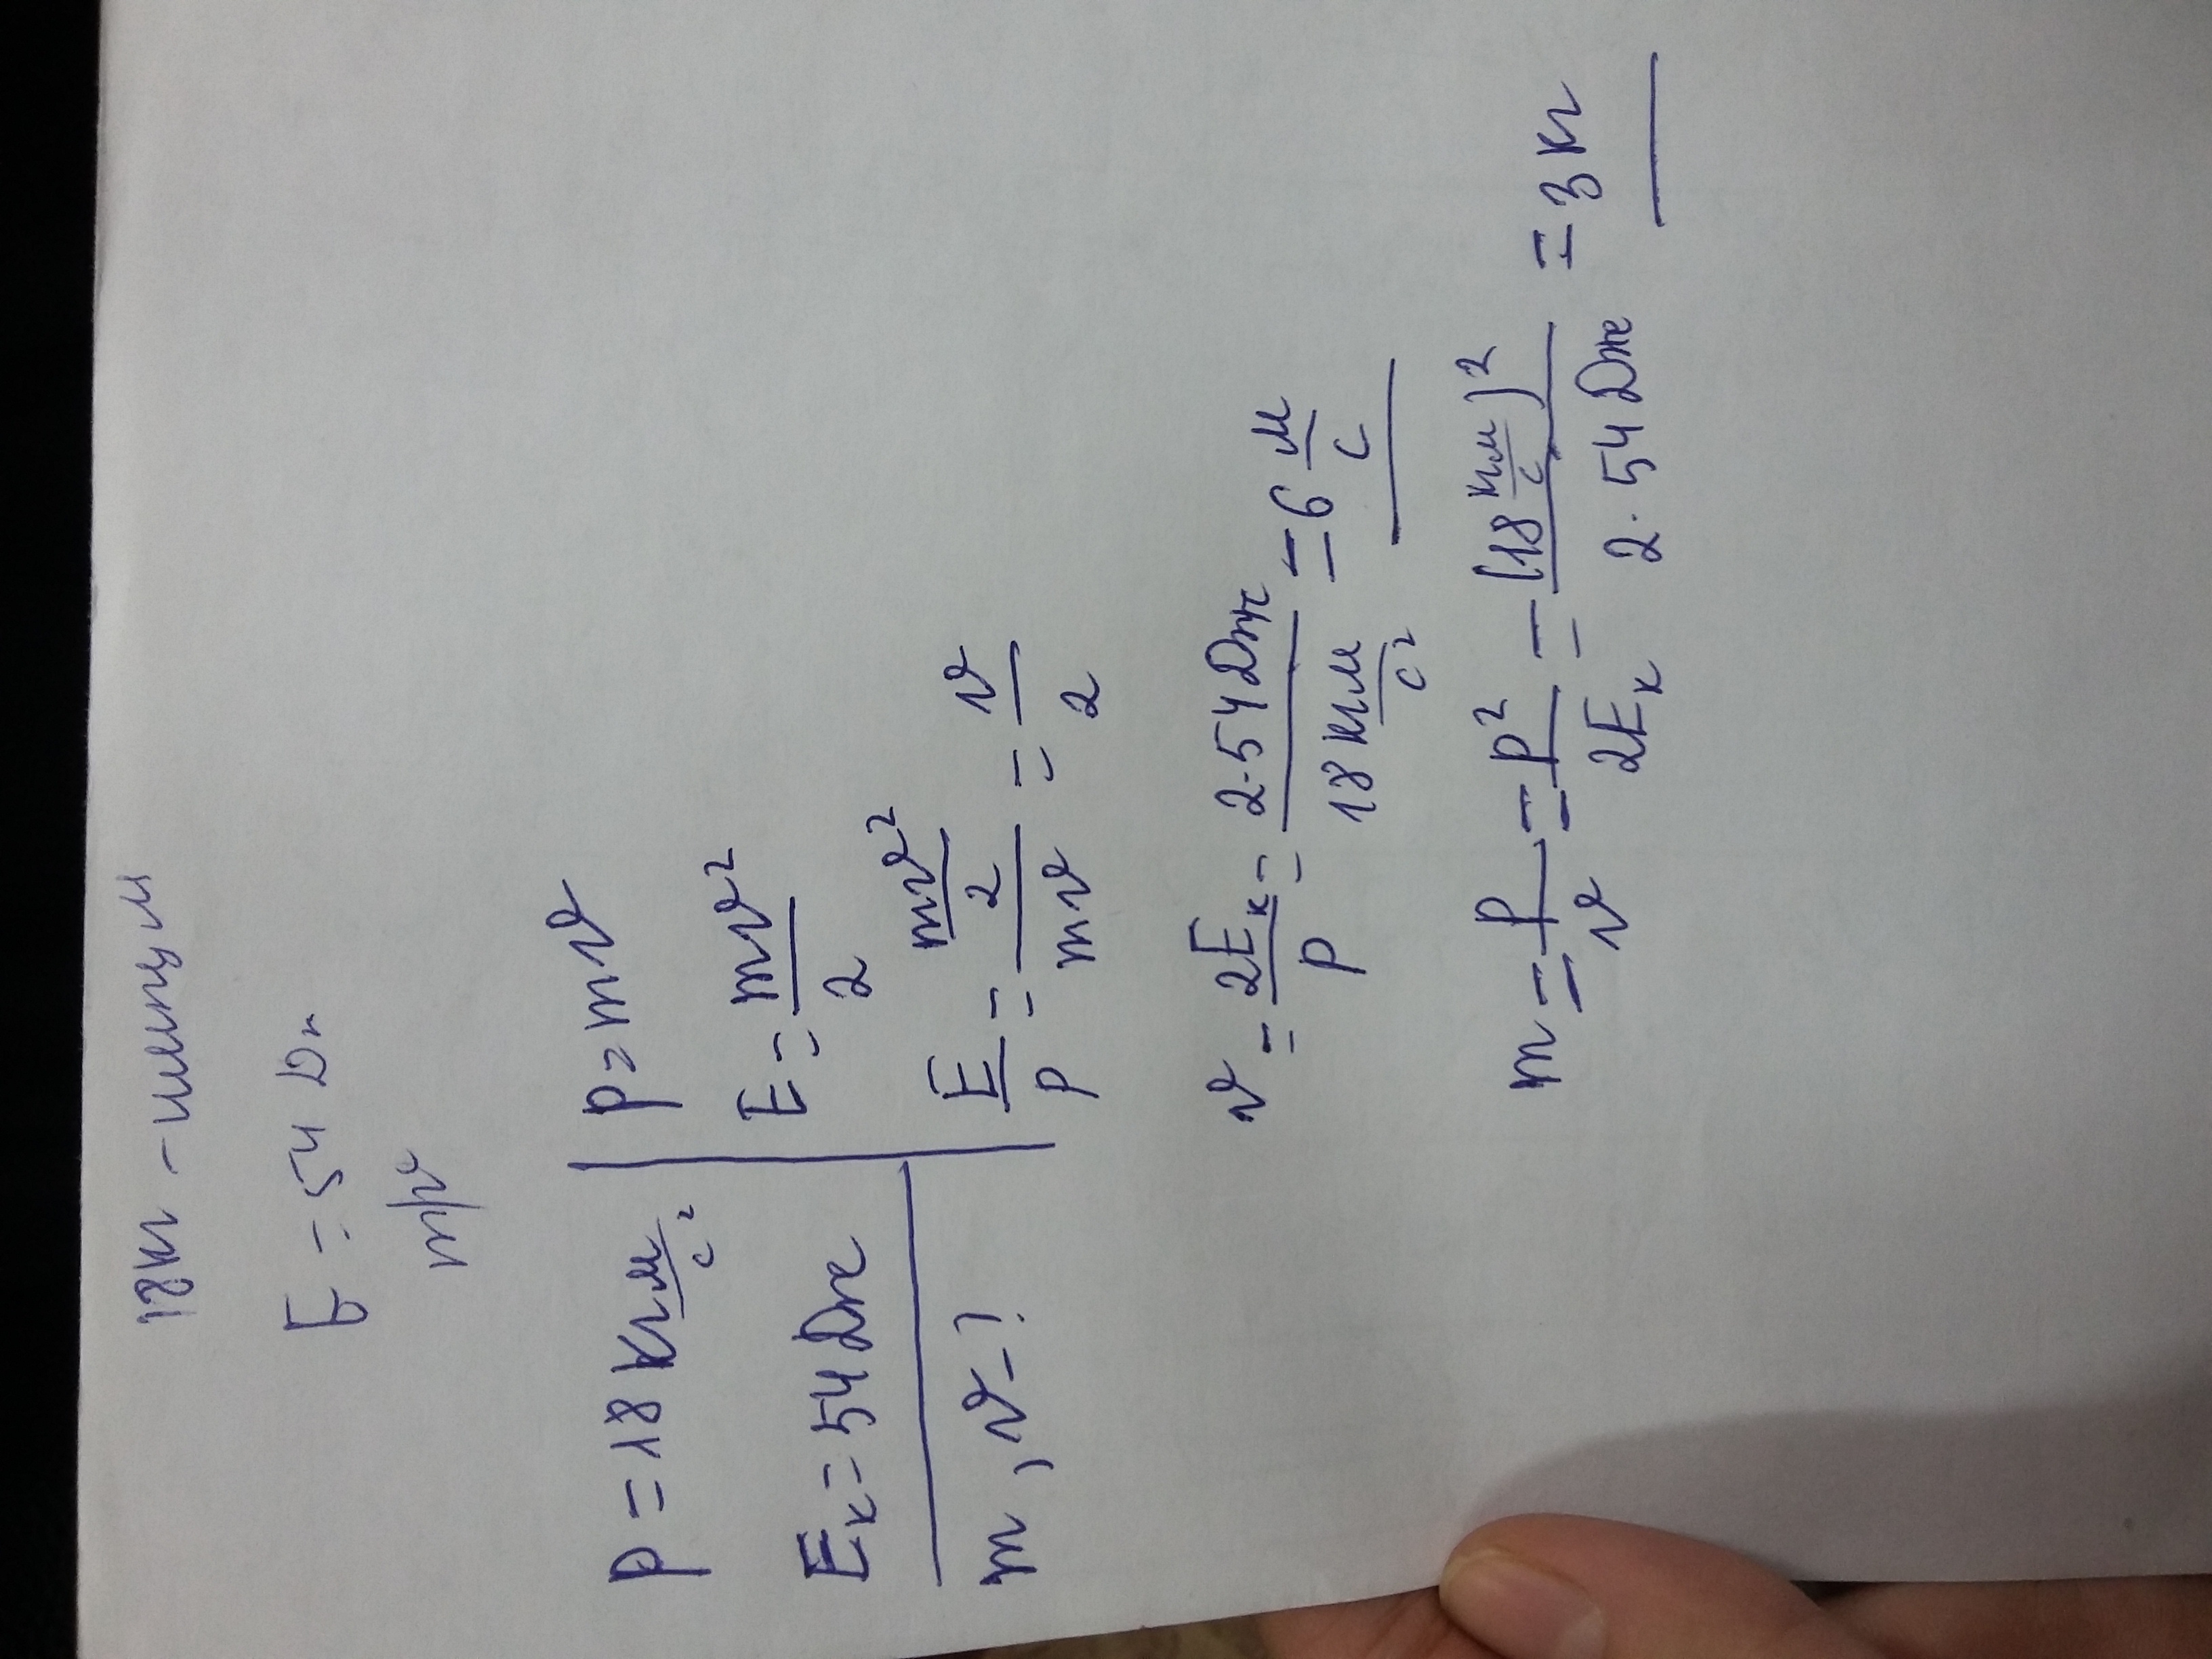 18кг - импул
E = 54 Дж
p = 18 кг м/с²
Eк = 54 Дж
m, v - ?
p = mv
E = mv²/2
E/p = (mv²/2)/(mv) = v/2
v = 2Eк/p = 2·54 Дж/18 кг м/с² = 6 м/с
m = p/v = p²/2Eк = (18 кг м/с)²/2·54 Дж = 3 кг